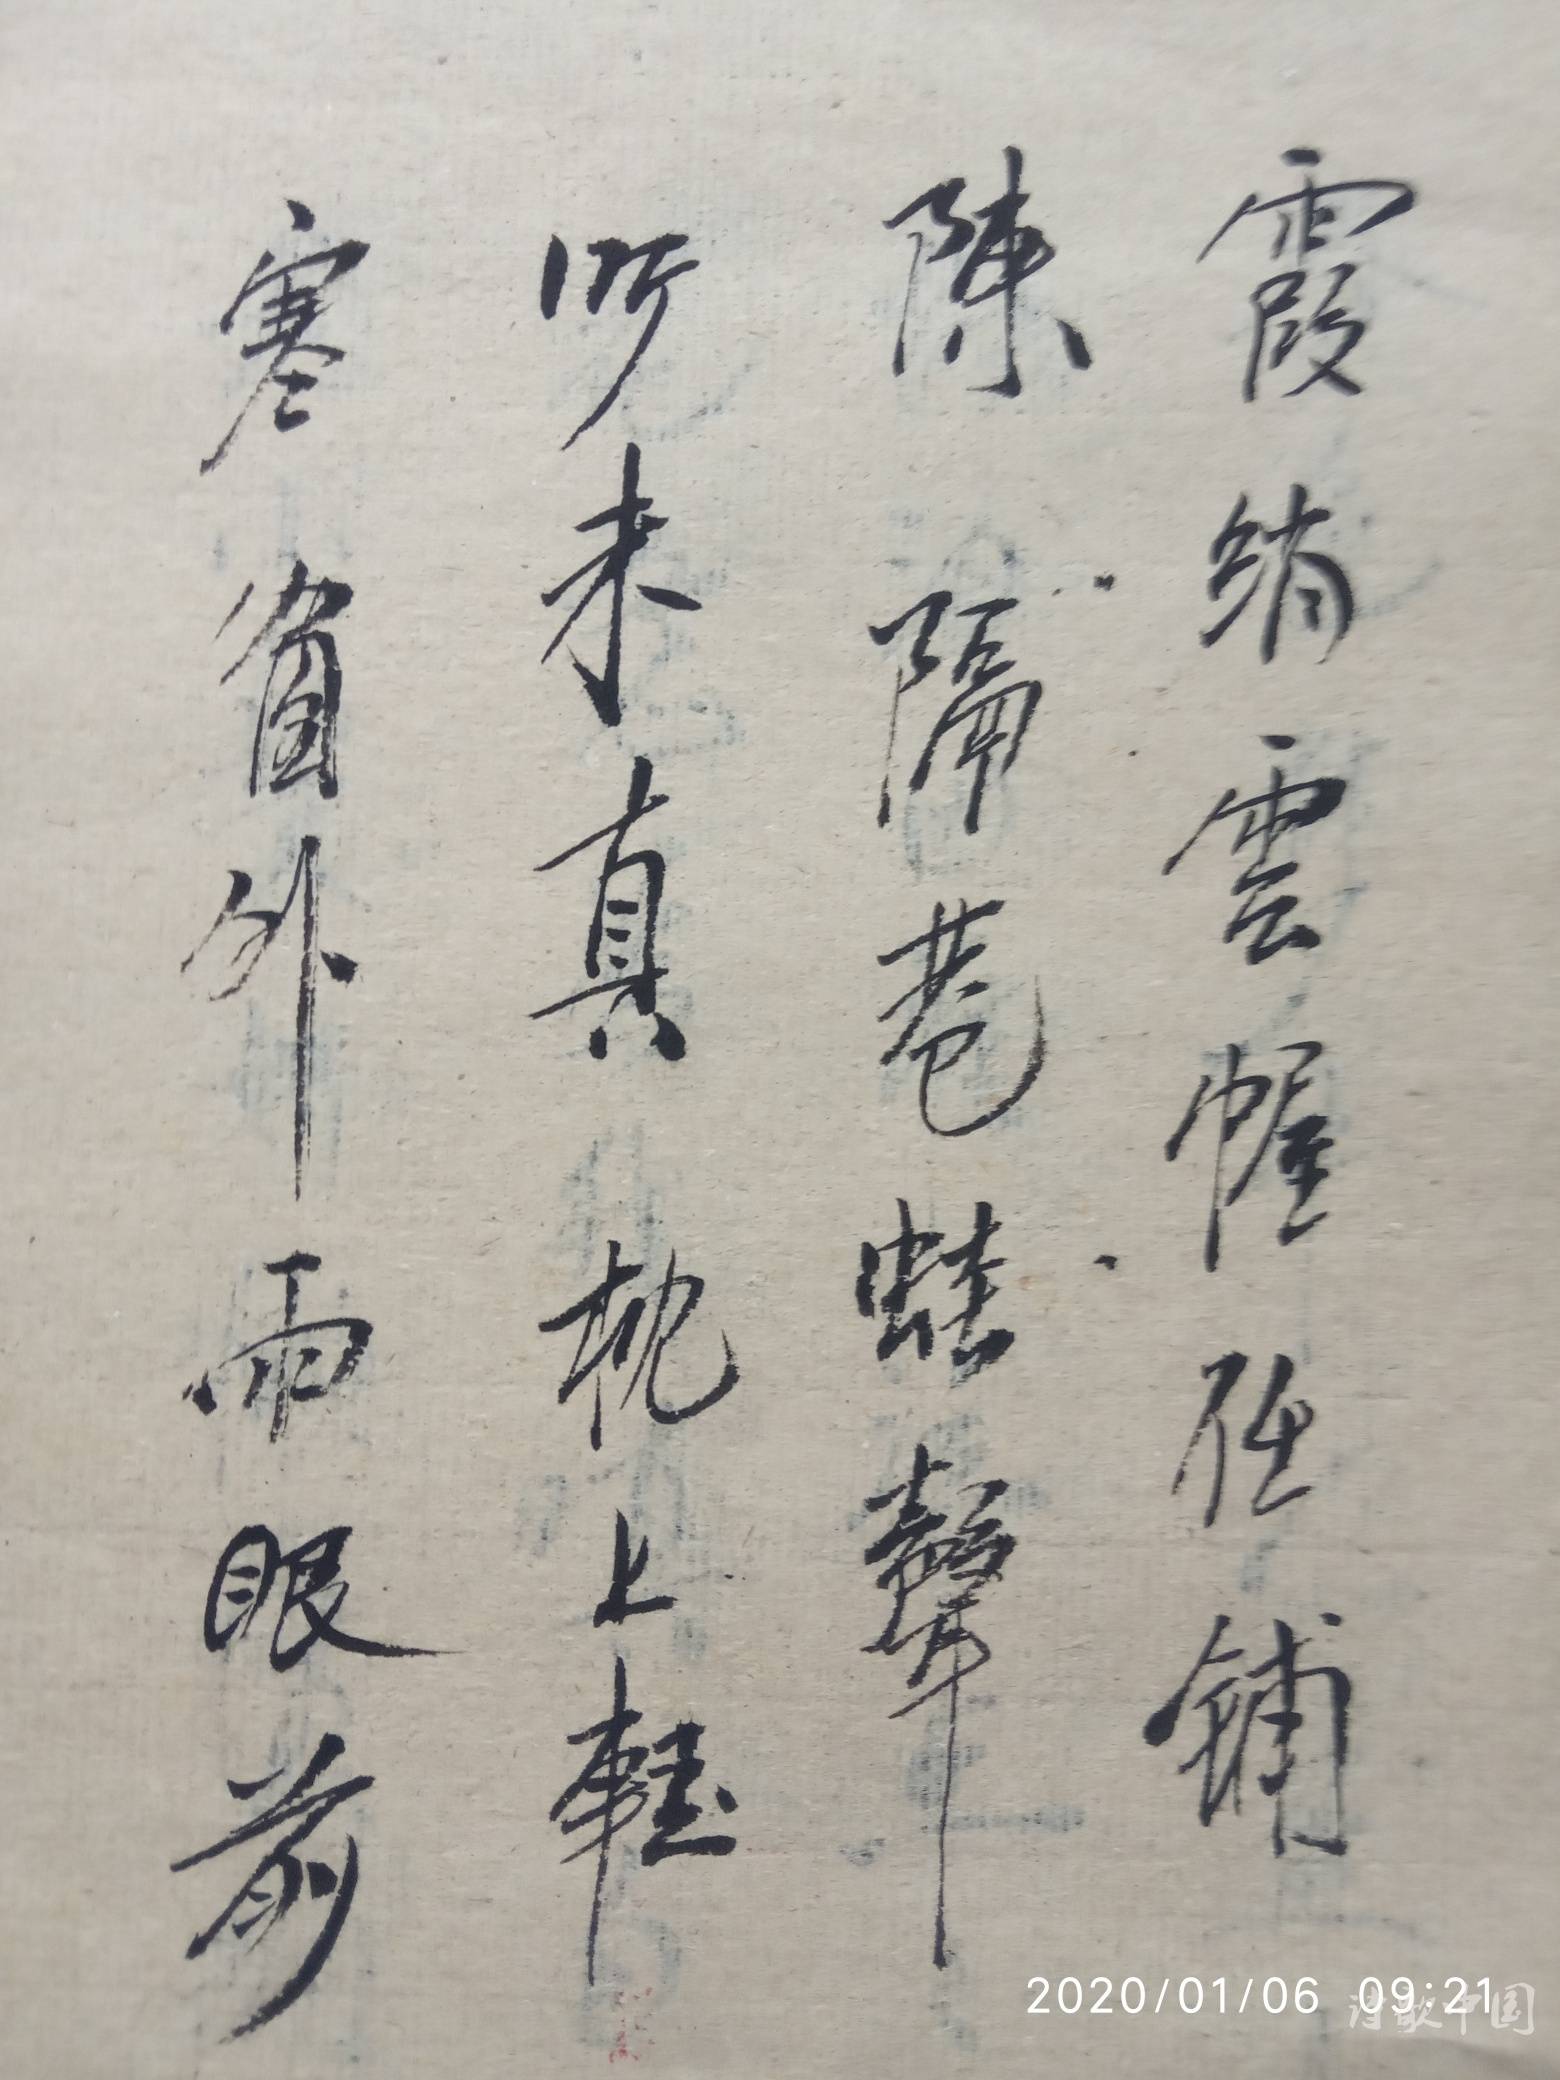 霞綃雲幄任鋪
陳隔巷蛙聲
听未真枕上輕
寒窗外雨眼前
2020/01/06 09:21
诗歌中国